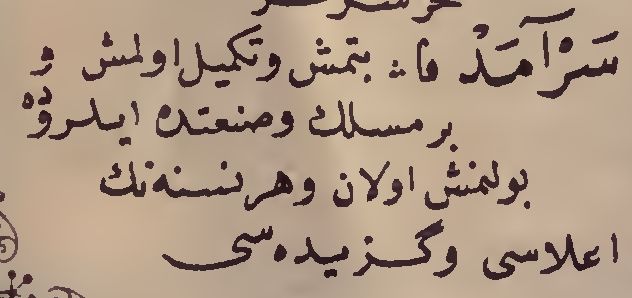 سَرْآمَدْ فا؞ بتمش و تكميل اولمش و
بر مسلك و صنعتده ايلرو
بولنمش اولان و هر نسنه نك
اعلاسى و گزيده سى